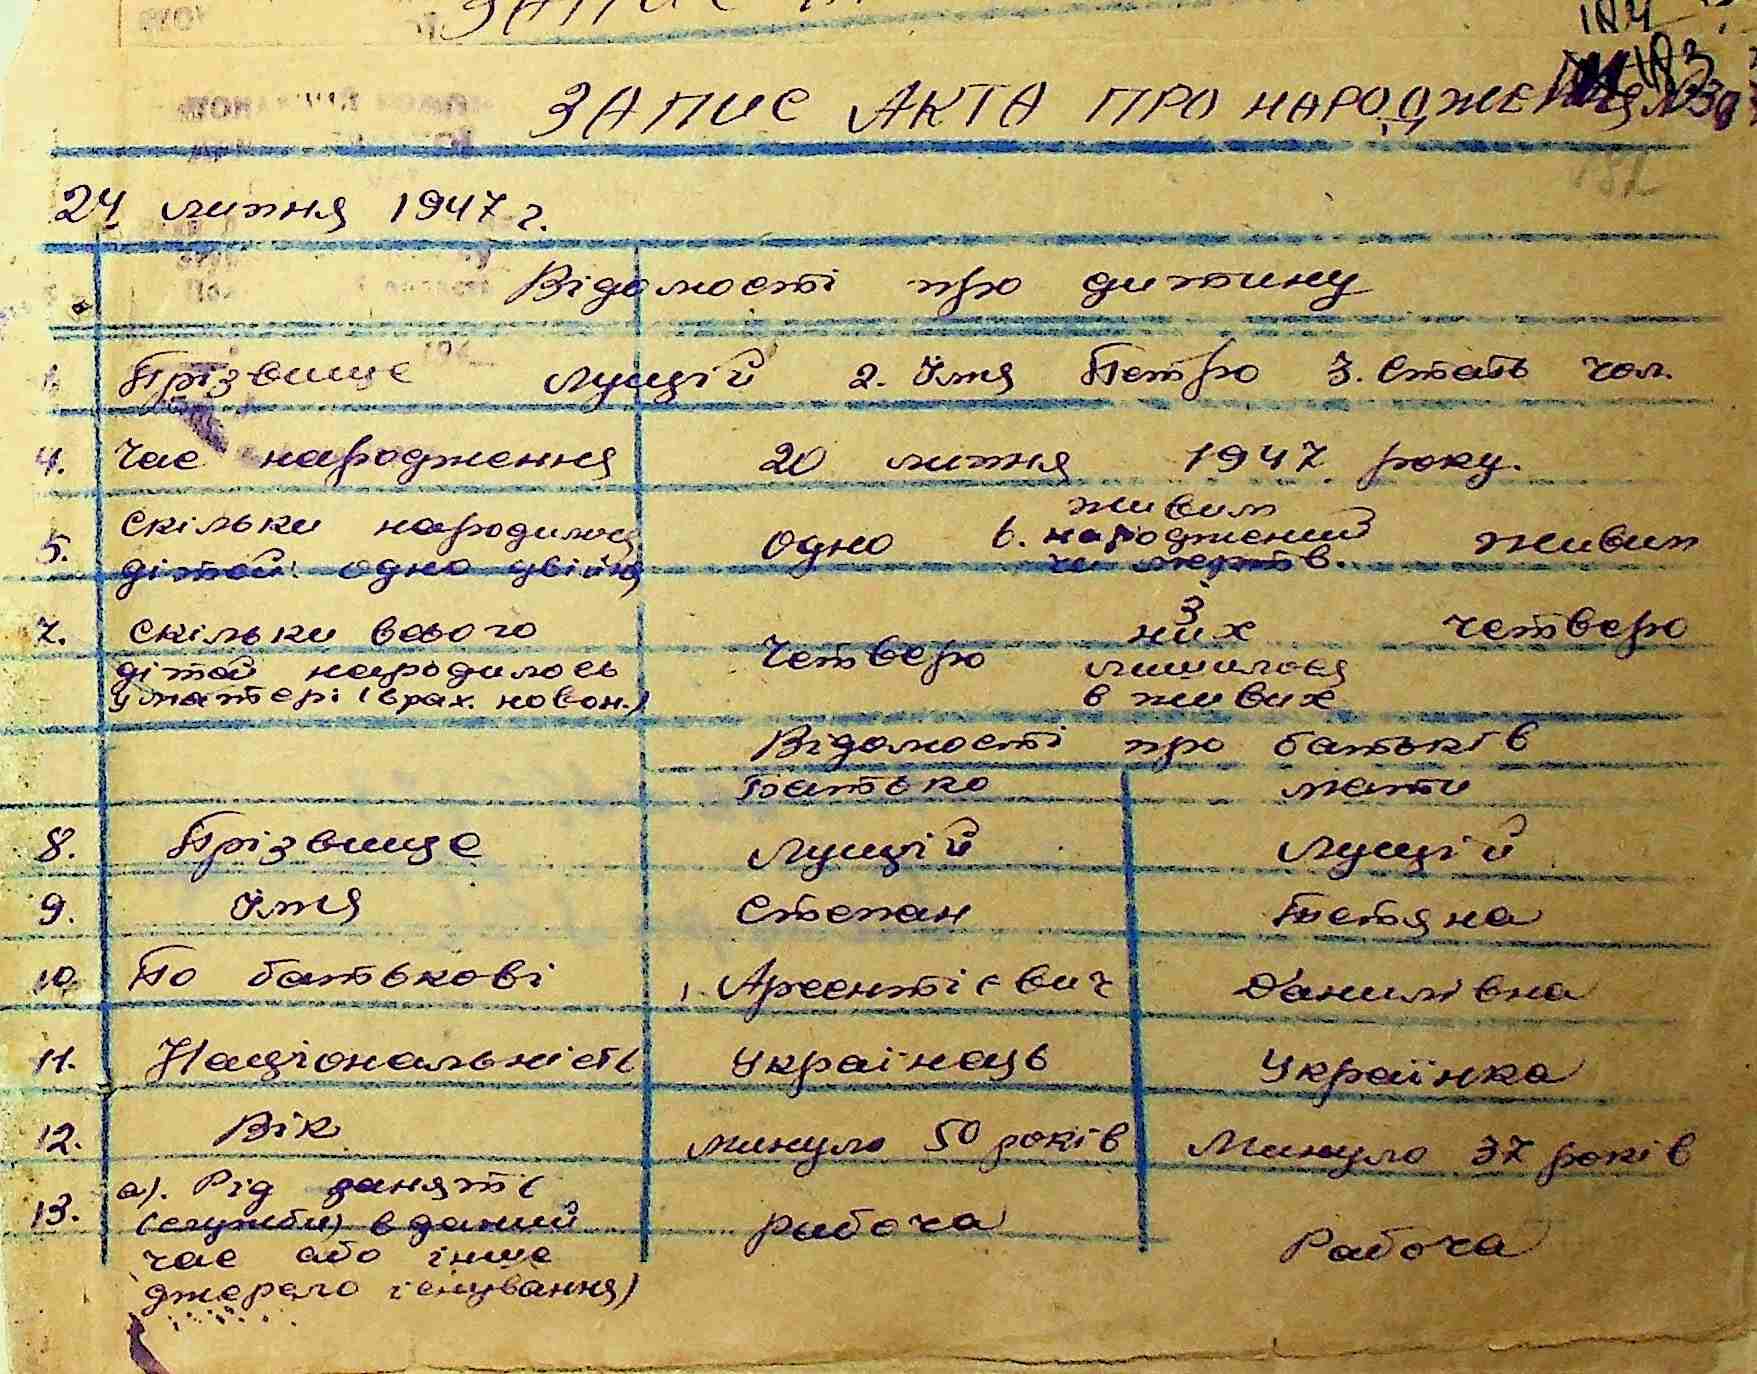 ЗАПИС
ЗАПИС АКТА ПРО НАРОДЖЕННЯ
24 липня 1947 г.
Відомості про дитину
1. Прізвище Луцій 2. Імя Петро 3. Стать чол.
4. Час народження 20 липня 1947 року.
5. Скільки народилося дітей: одно двійня Одно 6. живим народжений чи мертв. живим
7. Скільки всього дітей народилось у матері (врах. новон.) Четверо З них лишилося в живих четверо
Відомості про батьків
Батько Мати
8. Прізвище Луцій Луцій
9. Імя Степан Тетяна
10. По батькові Арсентієвич Данилівна
11. Національність Українець Українка
12. Вік минуло 50 років Минуло 37 років
13. а). Рід занять (служби) в даний час або інше джерело існування) рабоча Рабоча